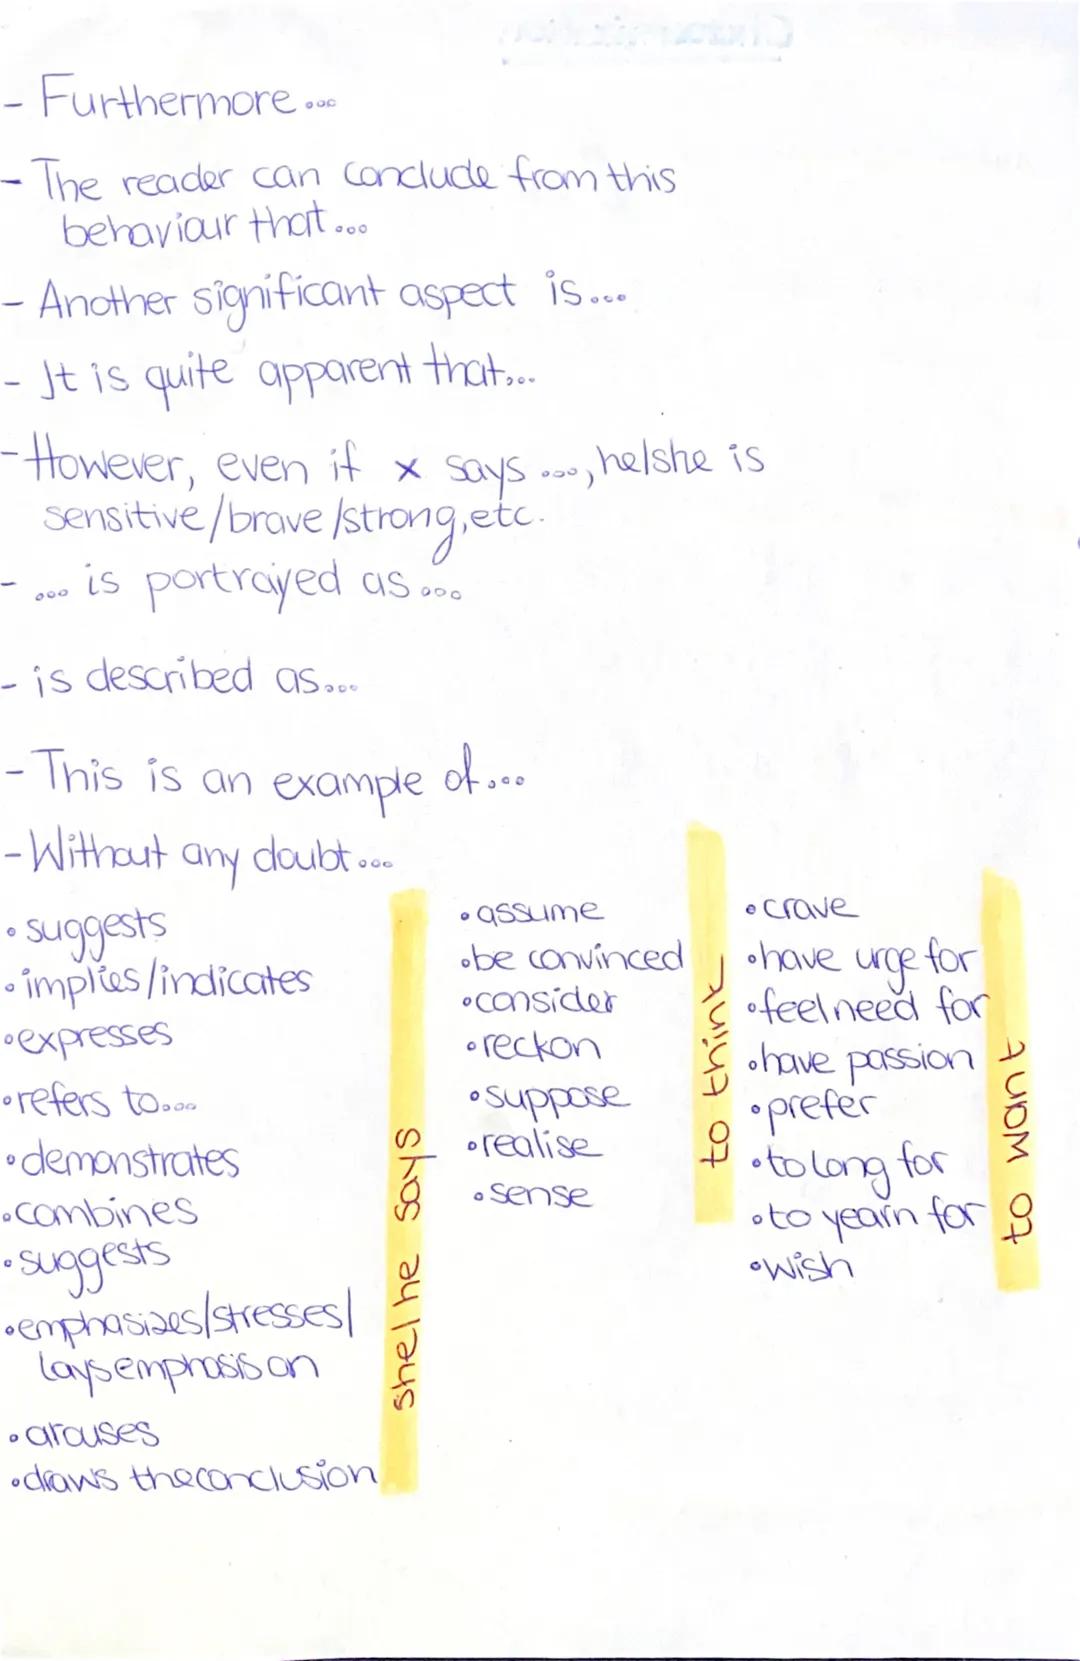 - Furthermore...
- The reader can conclude from this
behaviour that...
- Another significant aspect is...
- It is quite apparent that...
- However, even if x says ..., he/she is
sensitive/brave/strong, etc.
- ... is portrayed as...
- is described as...
- This is an example of...
- Without any doubt...
• suggests
• implies/indicates
• expresses
• refers to...
• demonstrates
• combines
• suggests
• emphasizes/stresses/
lays emphasis on
• arouses
• draws the conclusion
she/he says
• assume
• be convinced
• consider
• reckon
• suppose
• realise
• sense
to think
• crave
• have urge for
• feel need for
• have passion
• prefer
• to long for
• to yearn for
• wish
to want